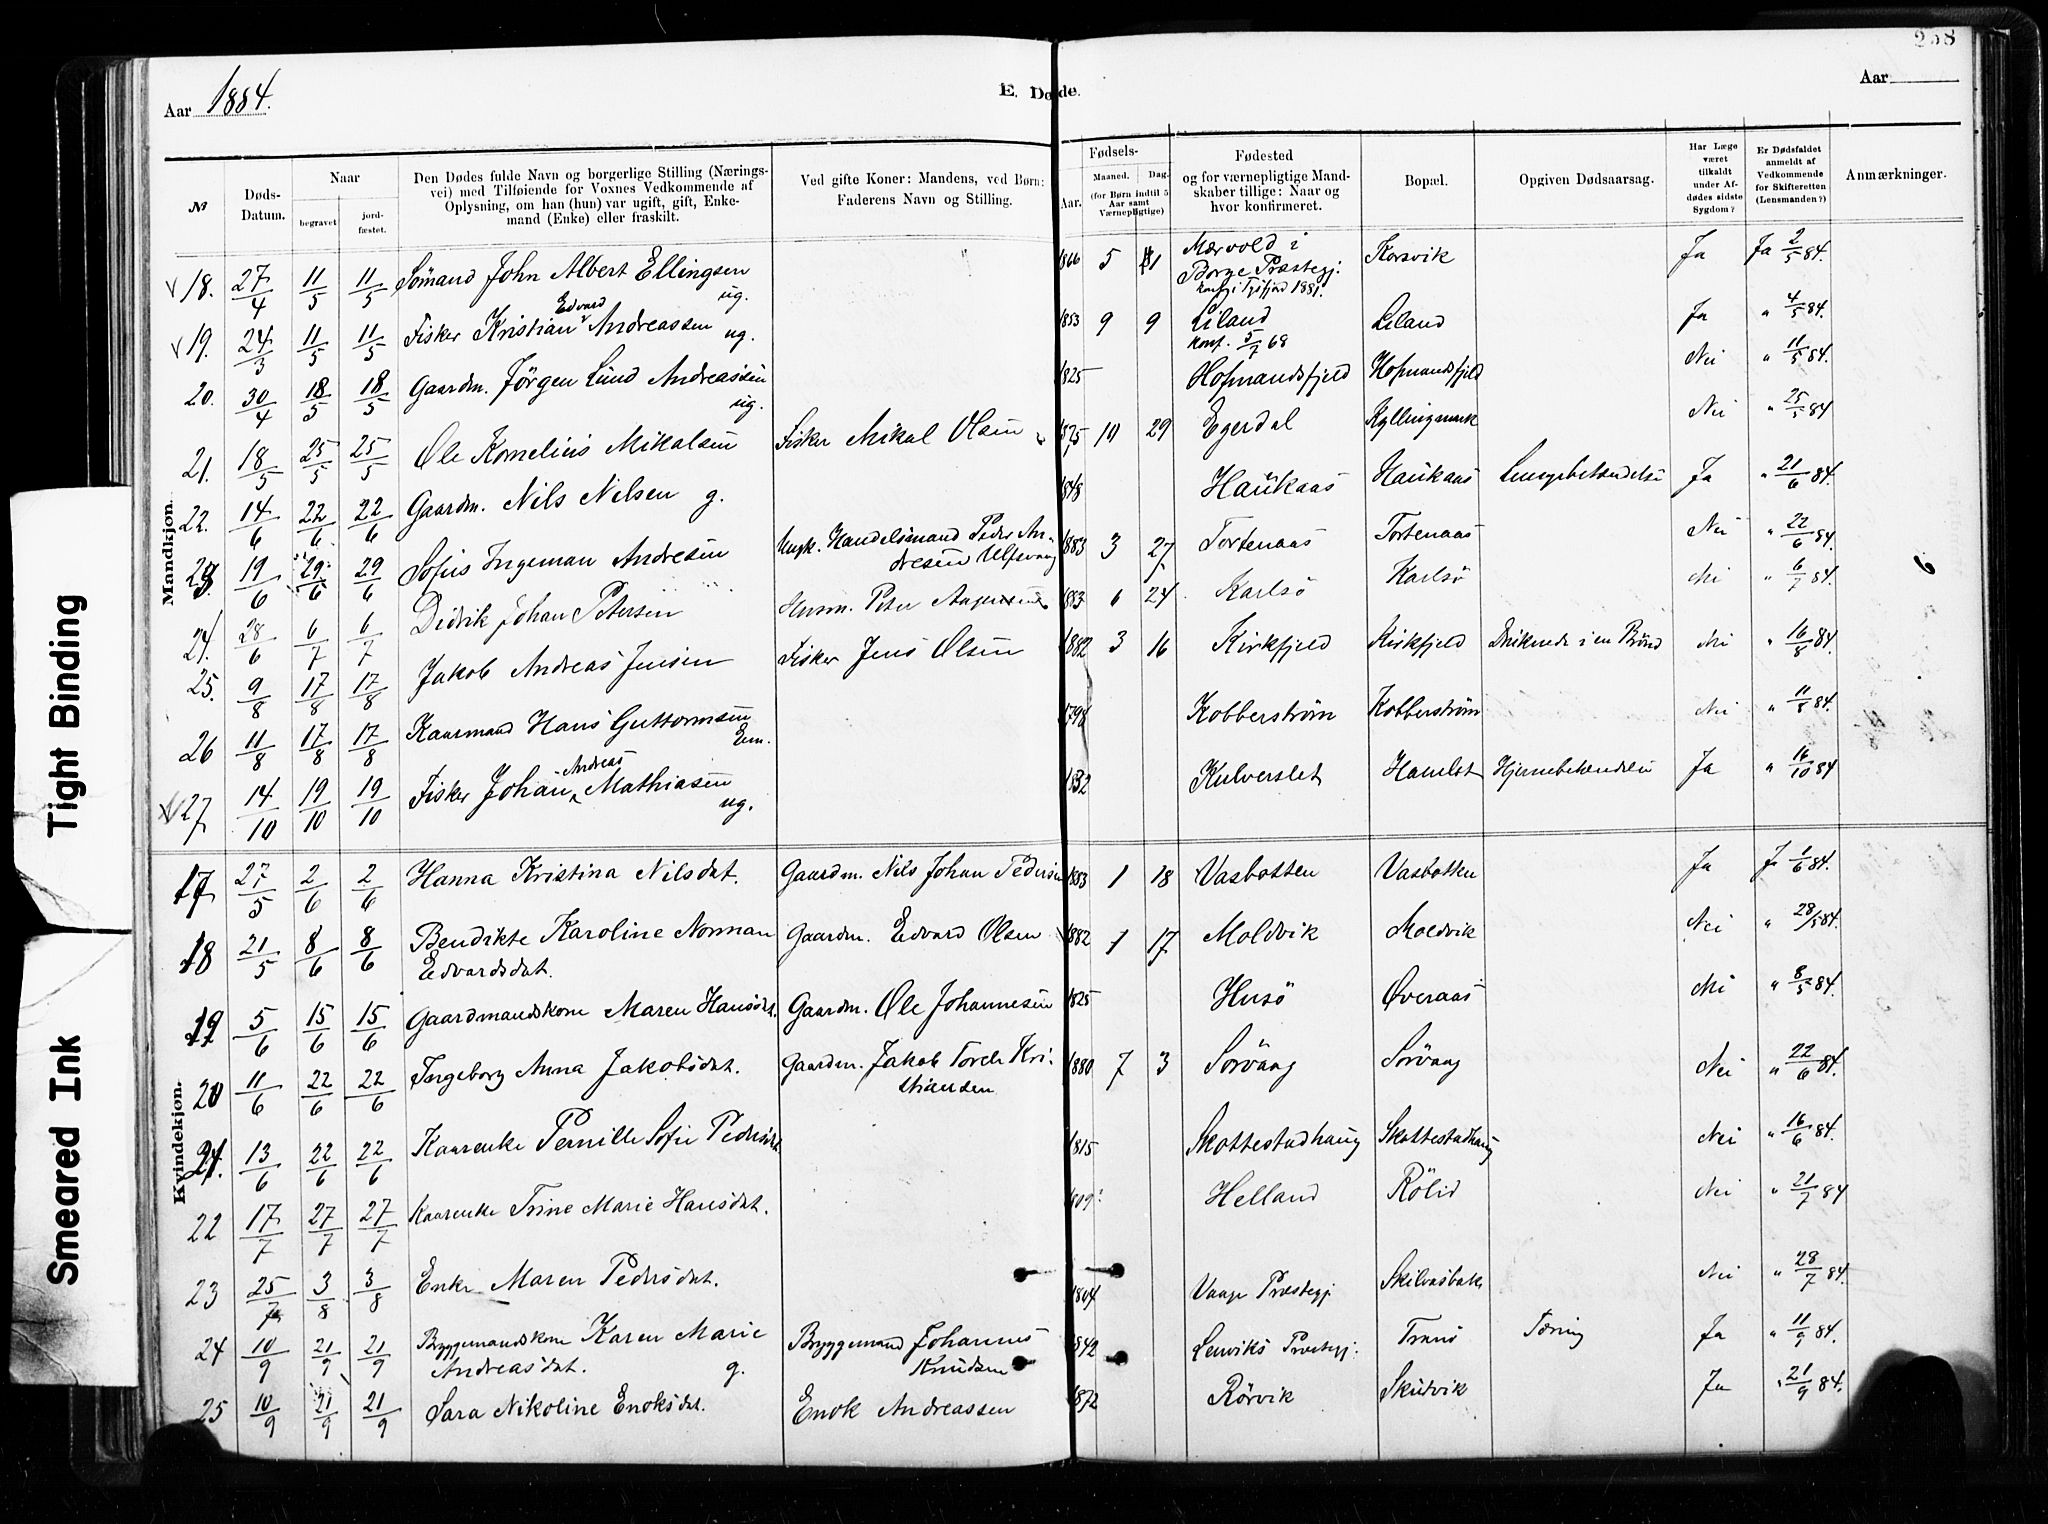 258
Aar 1884.
E. Døde.
Aar
Tight Binding
Smeared Ink
No
Døds-Datum.
Naar
begravet
jord-fæstet.
Den Dødes fulde Navn og borgerlige Stilling (Nærings-
vei) med Tilføiende for Voxnes Vedkommende af
Oplysning, om han (hun) var ugift, gift, Enke-
mand (Enke) eller fraskilt.
Ved gifte Koner: Mandens, ved Børn:
Faderens Navn og Stilling.
Fødsels-
Aar. Maaned. Dag.
(for Børn indtil 5
Aar samt
Værnepligtige)
Fødested
og for værnepligtige Mand-
skaber tillige: Naar og
hvor konfirmeret.
Bopæl.
Opgiven Dødsaarsag.
Har Læge
været
tilkaldt
under Af-
dødes sidste
Sygdom?
Er Dødsfaldet
anmeldt af
Vedkommende
for Skifteretten
(Lensmanden?)
Anmærkninger.
Mandkjøn.
18. 27/4 11/5 11/5 Sömand John Albert Ellingsen ug. 1866 5 1 Mærvold i Borge Præstegj. konf. i Tysfjord 1881. Korsvik Ja Ja 2/5 84.
19. 24/3 11/5 11/5 Fisker Kristian Edvard Andreassen ug. 1853 9 9 Liland konf. 5/7 68 Liland Ja " 4/5 84.
20. 30/4 18/5 18/5 Gaardm. Jörgen Lund Andreassen ug. 1825 Hofmandsfjeld Hofmandsfjeld Nei " 11/5 84.
21. 18/5 25/5 25/5 Ole Kornelius Mikalsen Fisker Mikal Olsen 1875 10 29 Egerdal Kyllingmark Nei " 25/5 84
22. 14/6 22/6 22/6 Gaardm. Nils Nilsen g. 1848 Haukaas Haukaas Lungebetændelse Ja " 21/6 84.
23. 19/6 29/6 29/6 Sofus Ingeman Andresen Ungk. Handelsmand Peder Andresen Ulfsvaag 1883 3 27 Tortenaas Tortenaas Nei " 22/6 84.
24. 28/6 6/7 6/7 Didrik Johan Petersen Husm. Peter 1883 6 24 Karlsö Karlsö Nei " 6/7 84.
25. 9/8 17/8 17/8 Jakob Andreas Jensen Fisker Jens Olsen 1882 3 16 Kirkfjeld Kirkfjeld Druknede i en Brönd Nei " 16/8 84.
26 11/8 17/8 17/8 Kaarmand Hans Guttormsen Em. 1798 Kobberstrøm Kobberstrøm Nei " 11/8 84.
27 14/10 19/10 19/10 Fisker Johan Andreas Mathiasen ug. 1832 Kulverslet Hamlot Hjernebetændelse Ja " 16/10 84
Kvindekjøn.
17 27/5 2/6 2/6 Hanna Kristina Nilsdat. Gaardm. Nils Johan Pedersen 1883 1 18 Vasbotten Vasbotten Ja Ja 1/6 84.
18 21/5 8/6 8/6 Bendikte Karoline Norman Edvardsdat. Gaardm. Edvard Olsen 1882 1 17 Moldvik Moldvik Nei " 28/5 84.
19 5/6 15/6 15/6 Gaardmandskone Maren Hansdt. Gaardm. Ole Johannesen 1825 Husö Øveraas Nei " 8/5 84.
20 11/6 22/6 22/6 Ingeborg Anna Jakobsdat. Gaardm. Jakob Torch Kristiansen 1880 7 3 Sörvaag Sörvaag Nei " 22/6 84.
21. 13/6 22/6 22/6 Kaarenke Pernille Sofie Pedersdt. 1815 Skottestadhaug Skottestadhaug Nei " 16/6 84.
22 17/7 27/7 27/7 Kaarenke Trine Marie Hansdat. 1809? Helland Rölid Nei " 21/7 84
23 25/7 3/8 3/8 Enke Maren Pedersdat. 1804 Vaage Præstegj. Nei " 28/7 84.
24 10/9 21/9 21/9 Byggemandskone Karen Marie Andreasdat. g. Byggemand Johannes Knudsen 1842 Lenviks Præstegj. Tranö Tæring Ja " 11/9 84.
25 10/9 21/9 21/9 Sara Nikoline Enoksdat. Enok Andreassen 1872 Rörvik Skutvik Ja " 21/9 84.
6